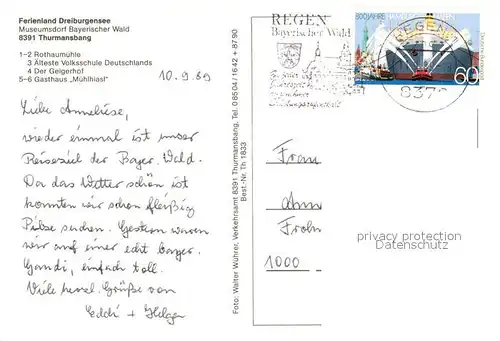 Ferienland Dreiburgensee
Museumsdorf Bayerischer Wald
8391 Thurmansbang
1–2 Rothaumühle
3 Älteste Volksschule Deutschlands
4 Der Geigerhof
5–6 Gasthaus „Mühlhiasl"
10.9.89
Liebe Anneliese,
wieder einmal ist unser
Reiseziel der Bayer. Wald.
Da das Wetter schön ist
konnten wir schon fleißig
Pilze suchen. Gestern waren
wir auf einer echt bayer.
Gaudi, einfach toll.
Viele herzl. Grüße von
Eddi + Helga
Foto: Walter Wührer, Verkehrsamt 8391 Thurmansbang, Tel. 08504/1642 + 8790
Best.-Nr. Th 1833
REGEN
Bayerischer Wald
REGEN
837
800 JAHRE HAFEN
60
Frau
Frohn
1000
privacy protection
Datenschutz